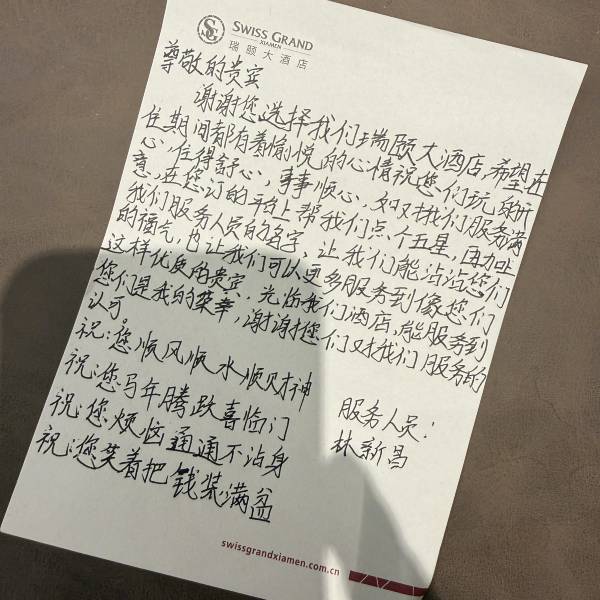 SWISS GRAND
XIAMEN
瑞颐大酒店
尊敬的贵宾
谢谢您选择我们瑞颐大酒店,希望在
住期间都有着愉悦的心情祝您们玩的开
心,住得舒心,事事顺心,如对我们服务满
意,在您订的平台上帮我们点个五星,再加上
我们服务人员的名字,让我们能沾沾您们
的福气,也让我们可以更多服务到像您们
这样优质的贵宾,光临我们酒店,能服务到
您们是我的荣幸,谢谢您们对我们服务的
认可
祝:您顺风顺水顺财神
祝:您马年腾跃喜临门
祝:您烦恼通通不沾身
祝:您笑着把钱装满盆
服务人员:
林新昌
swissgrandxiamen.com.cn